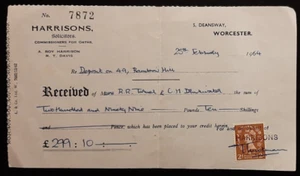 No. 7872
5, DEANSWAY,
WORCESTER.
HARRISONS,
SOLICITORS.
COMMISSIONERS FOR OATHS.
A. ROY HARRISON
February 1964
To Deposit on 49, Rainbow Hill
Received of Messrs R.R. & C.H. the sum of
Two Hundred and Ninety Nine Pounds, Ten Shillings
and Pence, which has been placed to your credit herein.
For and
HARRISONS
£299:10:—